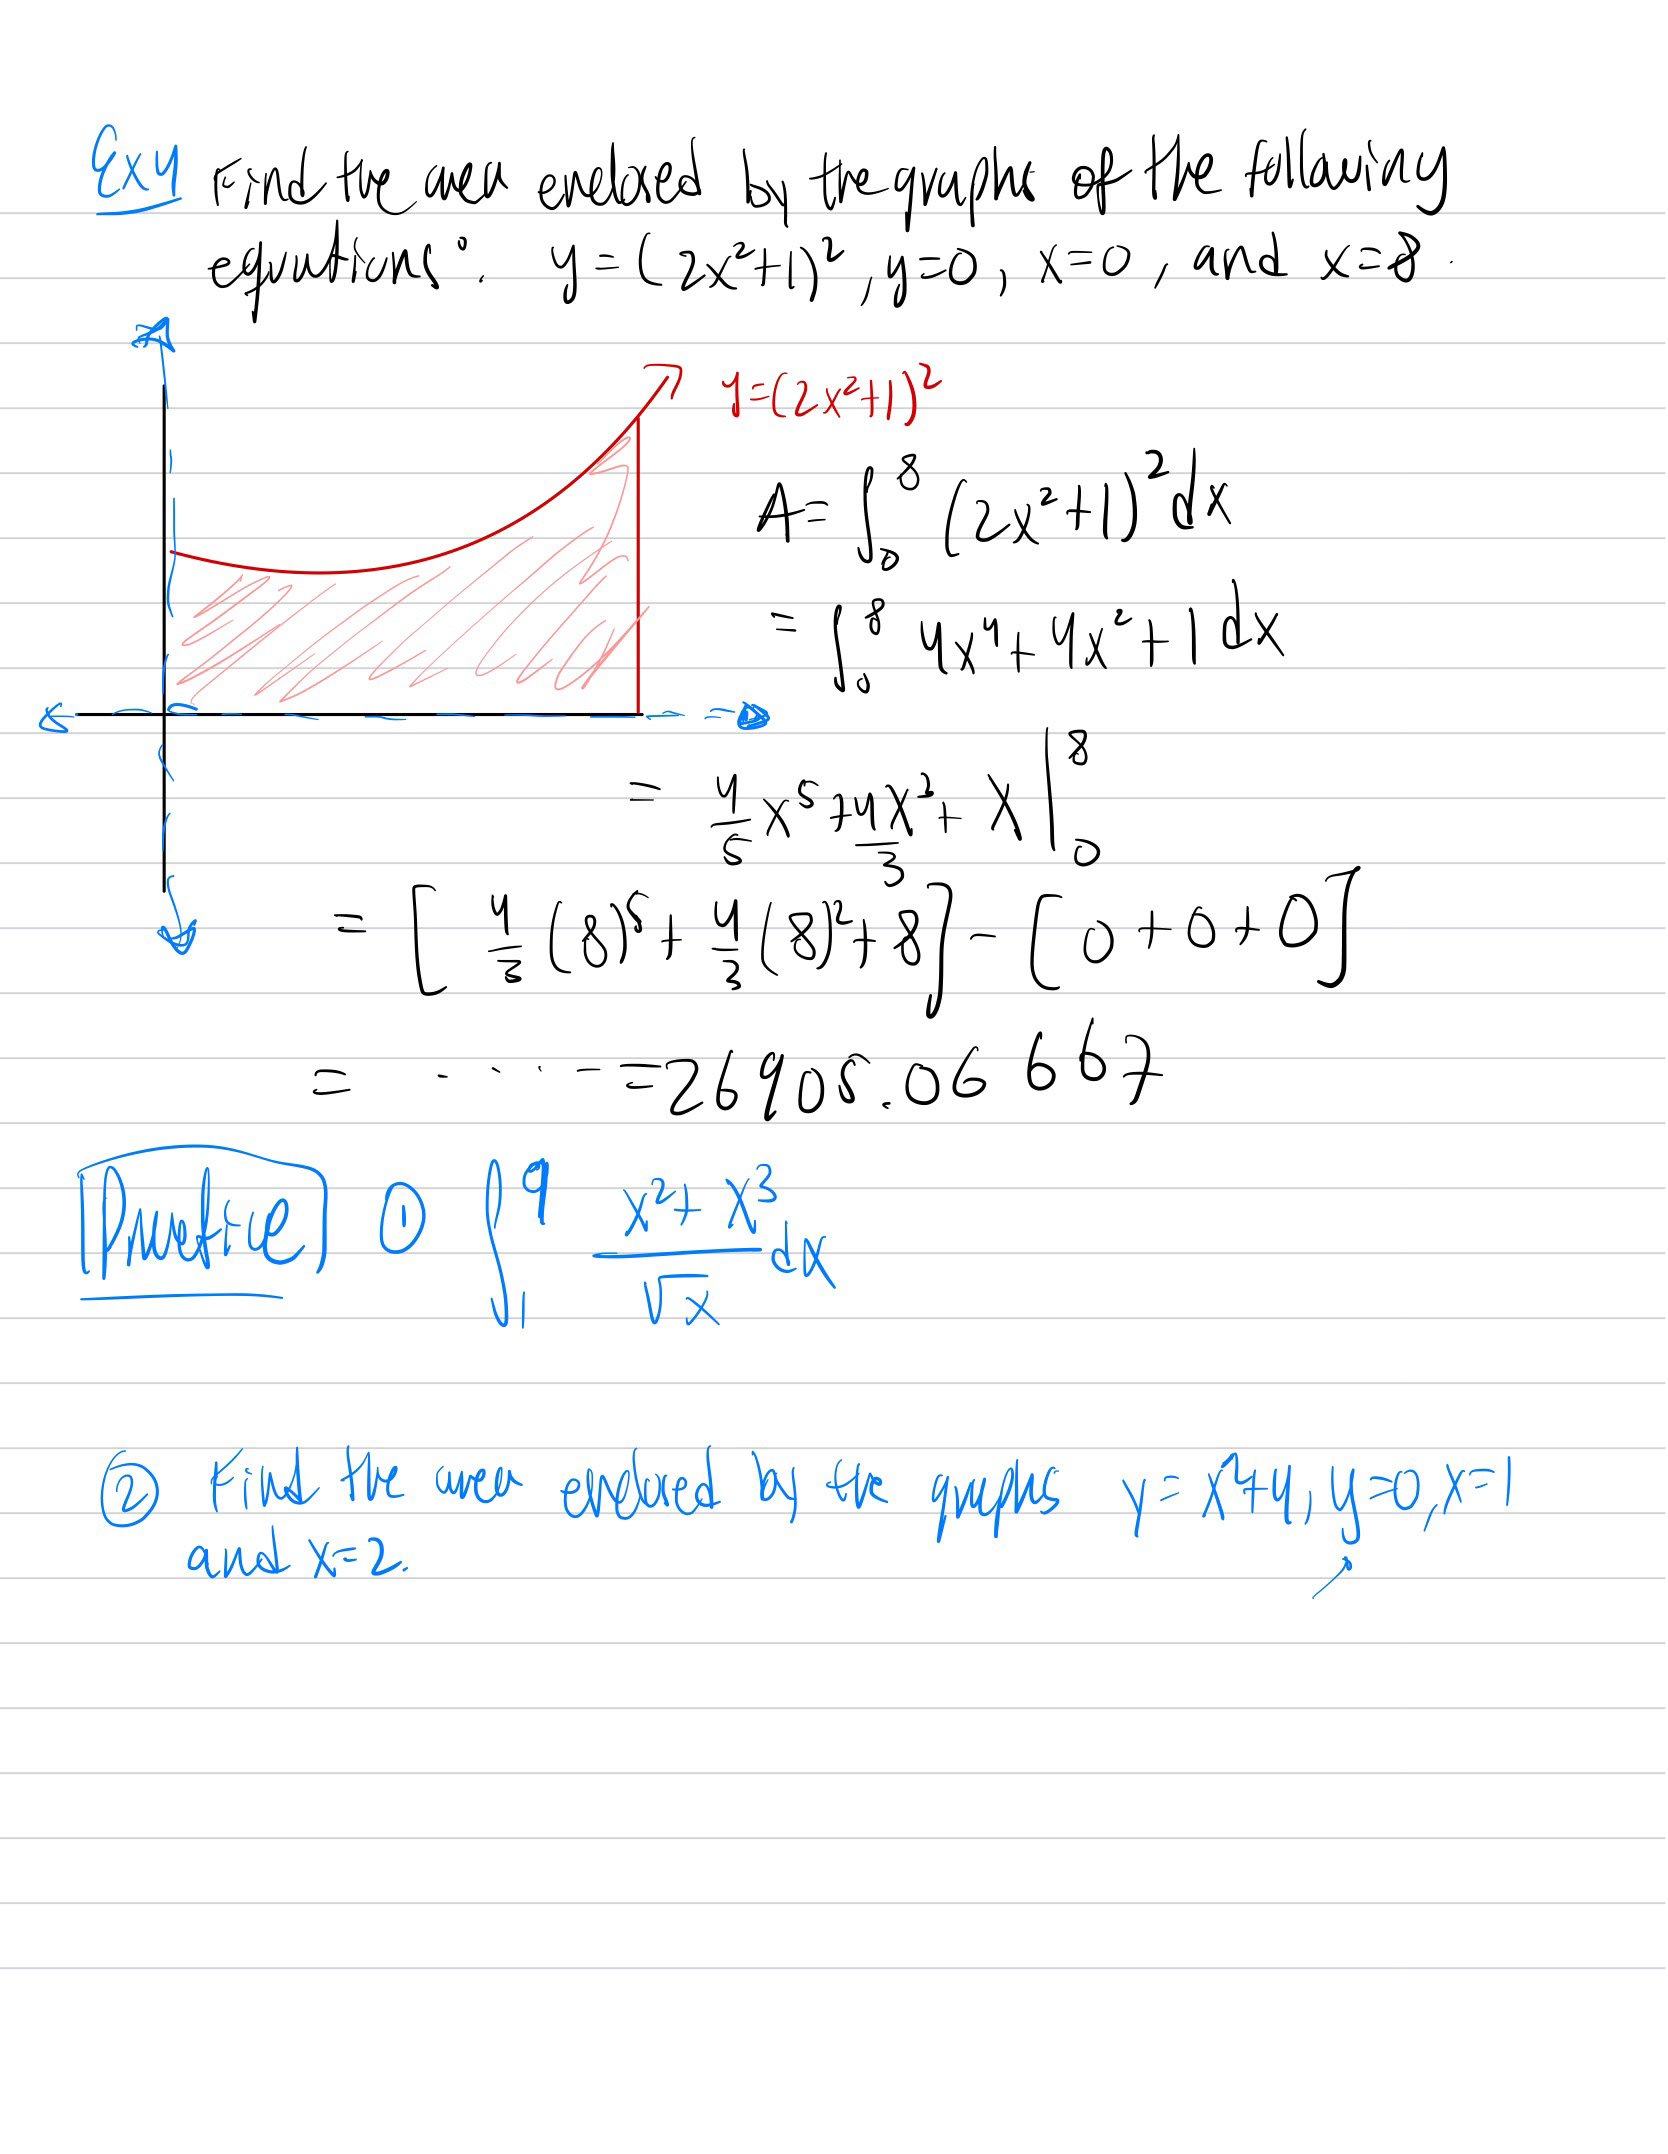 Ex 4 Find the area enclosed by the graphs of the following
equations: y=(2x²+1)², y=0, x=0, and x=8.
y=(2x²+1)²
A= ∫₀⁸ (2x²+1)² dx
= ∫₀⁸ 4x⁴+4x²+1 dx
= 4/5 x⁵ + 4x³/3 + x |₀⁸
= [4/3 (8)⁵ + 4/3 (8)² + 8] - [0+0+0]
= ..... = 26905.06667
Practice ① ∫₁⁹ (x²+x³)/√x dx
② Find the area enclosed by the graphs y=x²+4, y=0, x=1
and x=2.